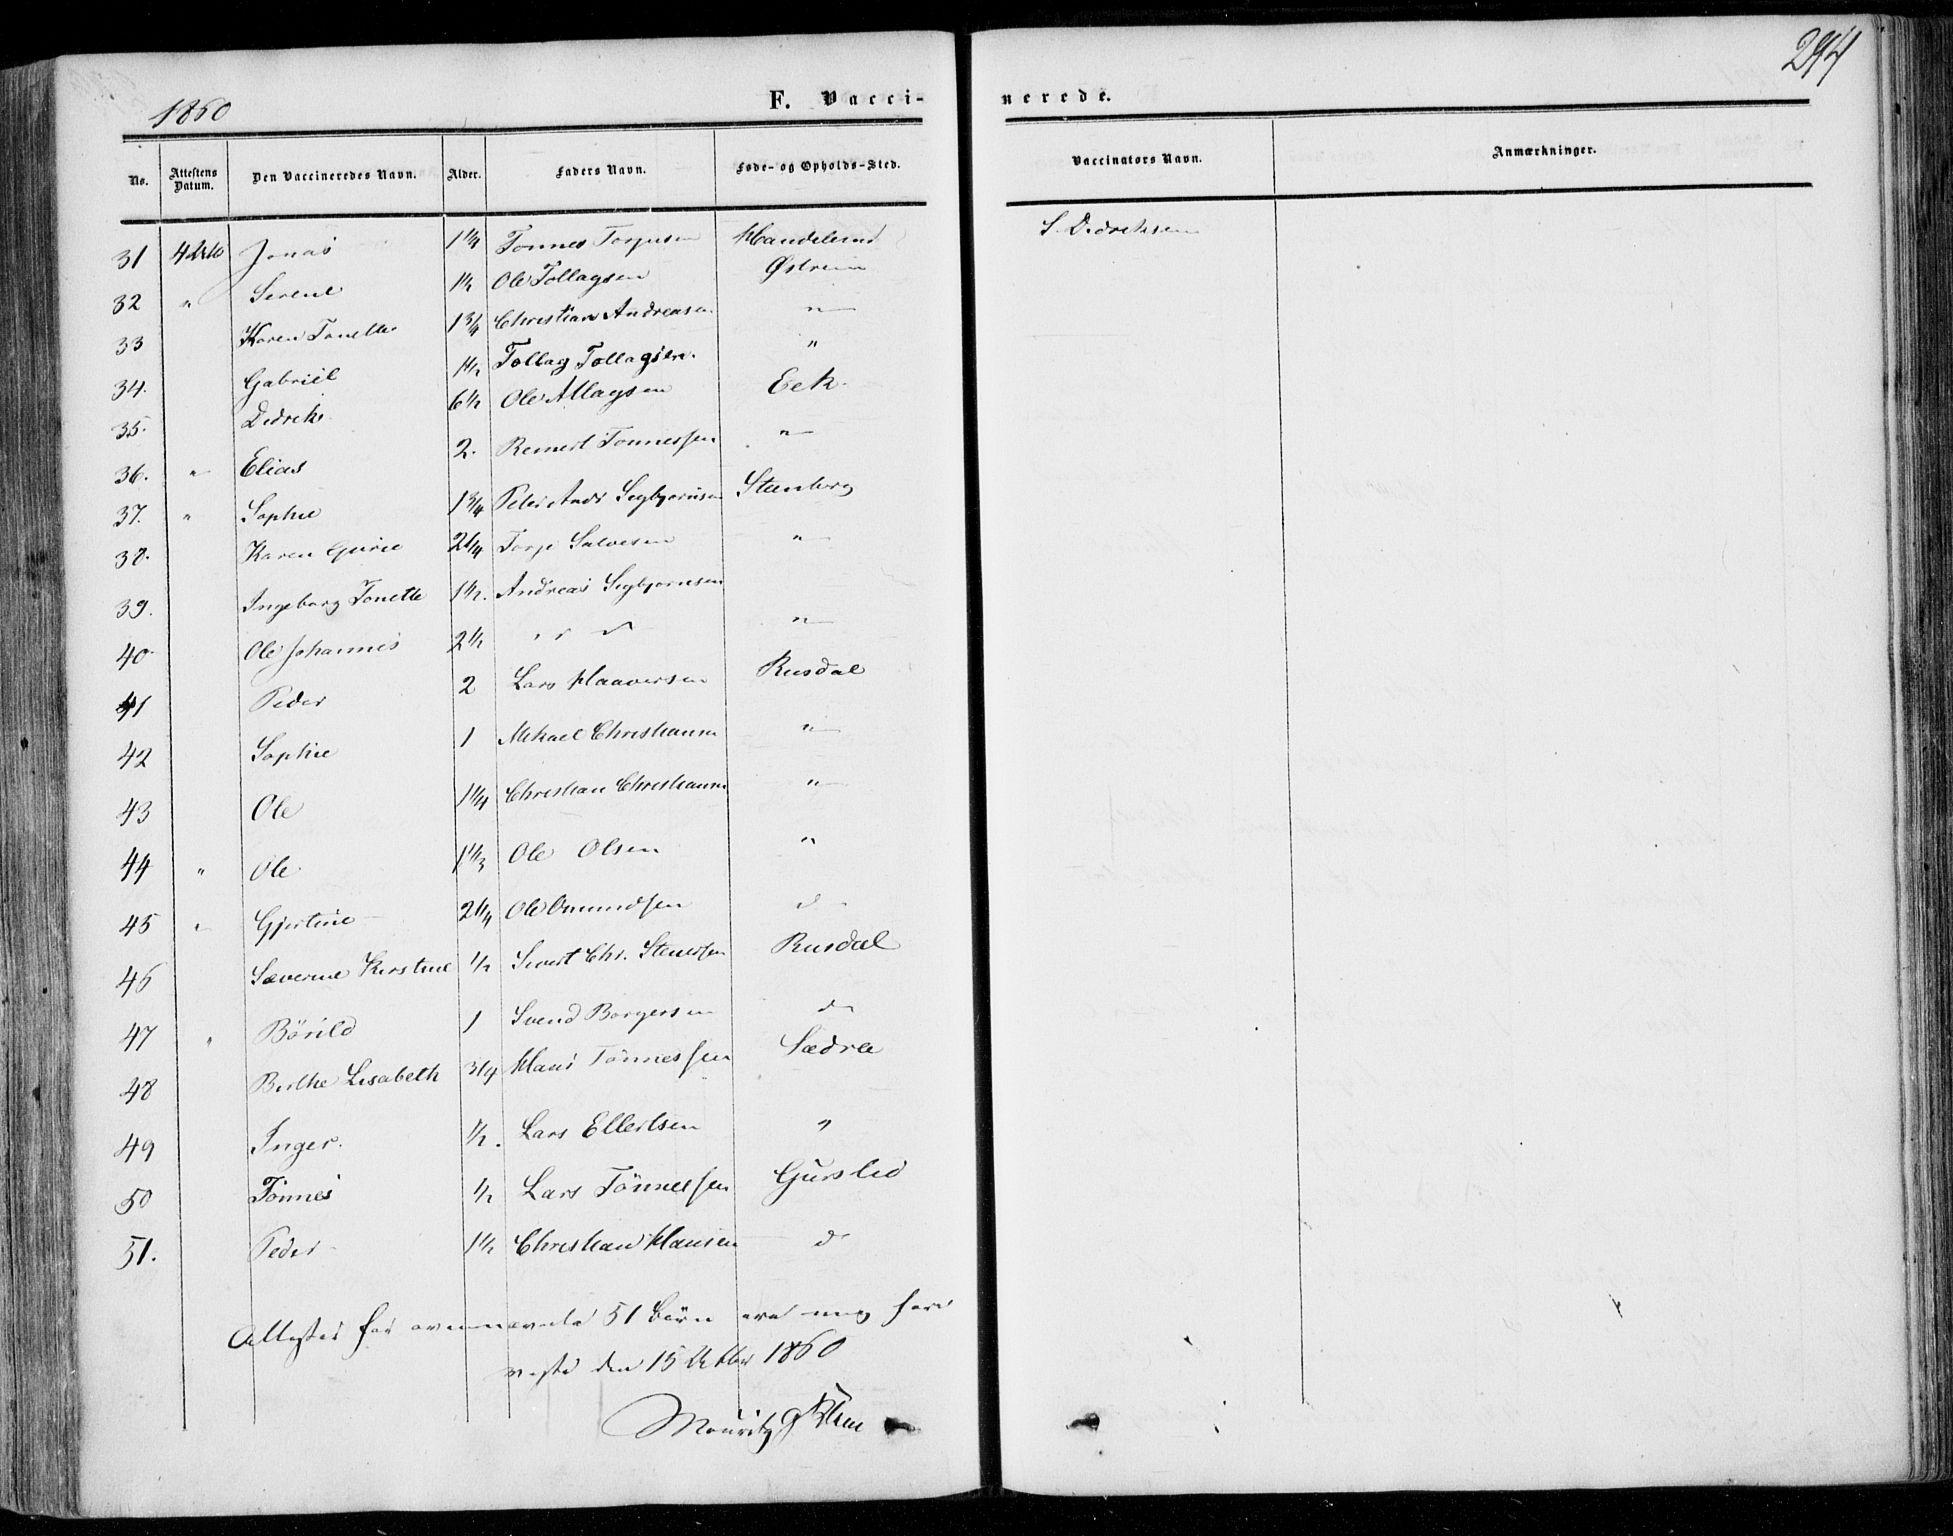 294
1860
F. Vaccinerede.
No. Attestens Datum. Den Vaccineredes Navn. Alder. Faders Navn. Føde- og Opholds-Sted. Vaccinators Navn. Anmærkninger.
31 Jonas 1 1/4 Tonnes Torgusen S. Didrichsen
32 " Serene 1 1/2 Ole Tollagsen Østrem
33 Karen Tonette 1 3/4 Christian Andreasen "
34. Gabriel 1 1/2 Tollag Tollagsen "
35. Didrik 6 1/2 Ole Atlagsen Eek
36. " Elias 2. Reinert Tonnessen "
37. " Sophie 1 3/4 Peter Andr Segbjørnsen Stenberg
38. Karen Gurie 2 1/4 Torje Salvesen "
39. Ingeborg Tonette 1 1/2. Andreas Segbjørnsen
40 Ole Johannes 2 1/2 " " "
41 Peder 2 Lars Haaversen Rusdal
42 Sophie 1 Mikael Christiansen "
43 Ole 1 1/4 Christian Christiansen "
44 " Ole 1 1/3 Ole Olsen "
45 " Gjertine 2 1/4 Ole Omundsen d
46 Severine Kirstine 1/2 Sivert Chr. Stenersen Rusdal
47 " Børild 1 Svend Borgersen do
48 Birthe Lisabeth 3/4 Hans Tønnessen Sædra
49 Inger. 1/2. Lars Ellertsen "
50 Tønnes 1/2 Lars Tønnessen Gursled
51. Peder 1 1/2 Christian Hansen do
Attester for ovennævnte 51 børn ere mig fore
viste den 15 Oktbr 1860
Mouritz